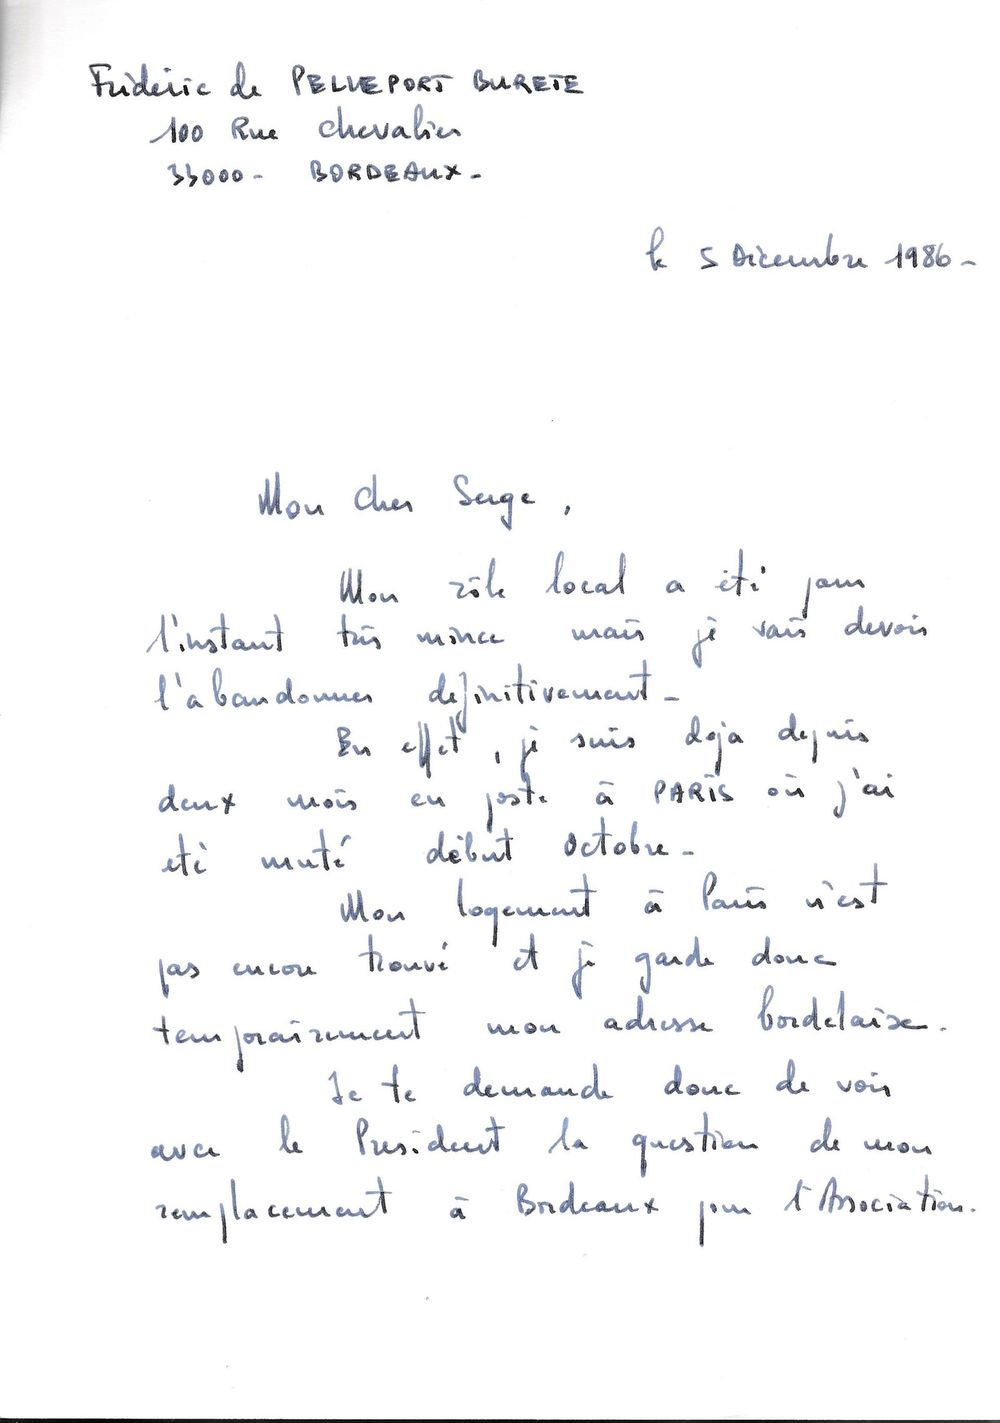 Frédéric de PELLEPORT BURETE
100 Rue Chevalier
33000 - BORDEAUX -
le 5 Décembre 1986 -
Mon cher Serge,
Mon rôle local a été pour
l'instant très mince mais je vais devoir
l'abandonner définitivement -
En effet, je suis déjà depuis
deux mois en poste à PARIS où j'ai
été muté début Octobre -
Mon logement à Paris n'est
pas encore trouvé et je garde donc
temporairement mon adresse bordelaise.
Je te demande donc de voir
avec le Président la question de mon
remplacement à Bordeaux pour l'Association.